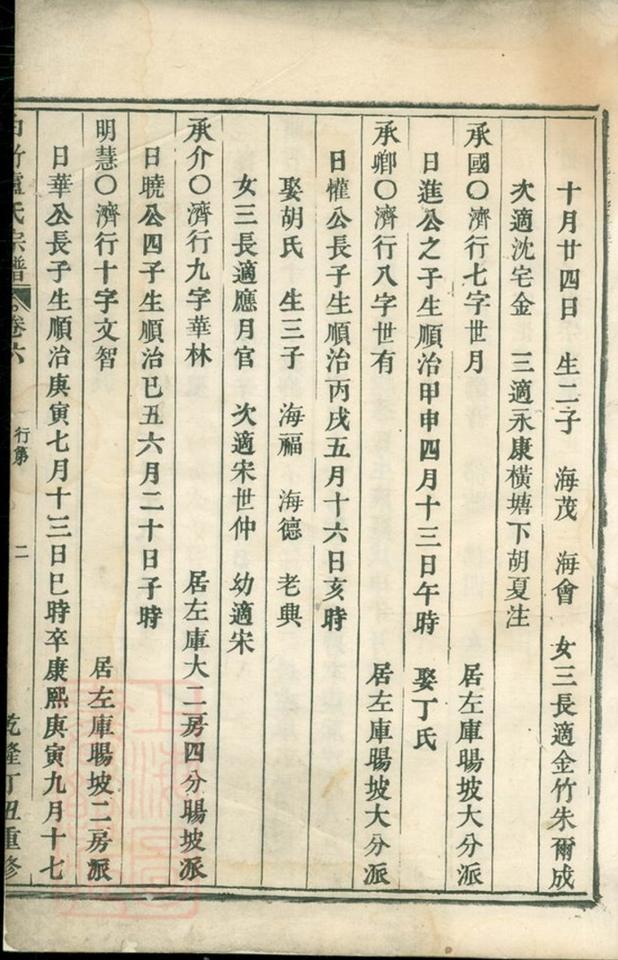 十月廿四日 生二子 海茂 海會 女三長適金竹朱爾成
次適沈宅金 三適永康橫塘下胡夏注
承國〇濟行七字世月 居左庫暘坡大分派
日進公之子生順治甲申四月十三日午時 娶丁氏
承卿〇濟行八字世有 居左庫暘坡大分派
日懽公長子生順治丙戌五月十六日亥時
娶胡氏 生三子 海福 海德 老典
女三長適應月官 次適宋世仲 幼適宋
承介〇濟行九字華林 居左庫大二房四分暘坡派
日曉公四子生順治己五六月二十日子時
明慧〇濟行十字文智 居左庫暘坡二房派
日華公長子生順治庚寅七月十三日巳時卒康熙庚寅九月十七
盧氏宗譜 卷六 行第 二 乾隆丁丑重修